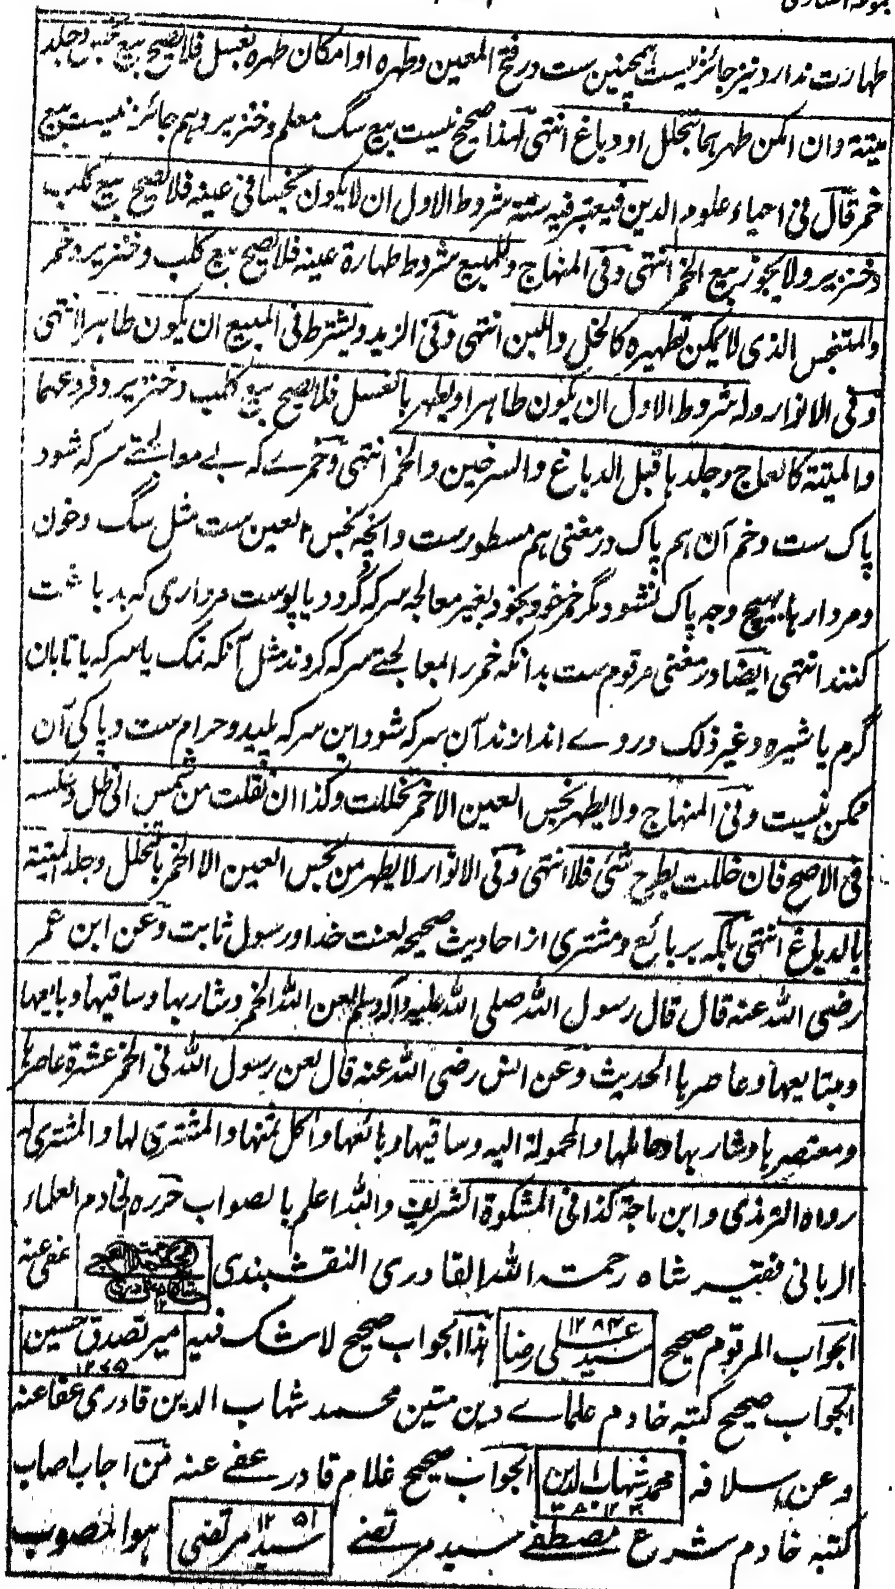 طهارت ندارد نیز جائز نیست همچنین ست در فتح المعین وطهره او امکان طهره بغسل فلا یصح بیع کلب وجلد
میتة وان امکن طهرها بتخلل او دباغ انتهی لهذا صحیح نیست بیع سگ معلم وخنزیر وهم جائز نیست بیع
خمر قال فی احیاء علوم الدین فیعتبر فیه ستة شروط الاول ان لا یکون نجسا فی عینه فلا یصح بیع کلب
وخنزیر ولا یجوز بیع الخمر انتهی وفی المنهاج وللمبیع شروط طهارة عینه فلا یصح بیع کلب وخنزیر وخمر
والمتنجس الذی لا یمکن تطهیره کالخل واللبن انتهی وفی الزبد ویشترط فی المبیع ان یکون طاهرا انتهی
وفی الانوار وله شروط الاول ان یکون طاهرا او یطهر بالغسل فلا یصح بیع کلب وخنزیر وفرعهما
والمیتة کالعاج وجلدها قبل الدباغ والسرجین والخمر انتهی وخمرے که بے معالجتے سرکه شود
پاک ست وخم آن هم پاک در مغنی هم مسطورست وانچه نجس العین ست مثل سگ وخون
ومردارها بهیچ وجه پاک نشود مگر خمر خود بخود بغیر معالجه سرکه گردد یا پوست مرداری که بدباغت
کنند انتهی ایضا در مغنی مرقوم ست بدانکه خمر را بمعالجتے سرکه کردند مثل آنکه نمک یا سرکه یا تابان
گرم یا شیره وغیر ذلک دروے اندازند آن سرکه شود این سرکه پلید وحرام ست وپاکی آن
ممکن نیست وفی المنهاج ولا یطهر نجس العین الا خمر تخللت وکذا ان نقلت من شمس الی ظل وعکسه
فی الاصح فان خللت بطرح شئ فلا انتهی وفی الانوار لا یطهر من نجس العین الا الخمر بالتخلل وجلد المیتة
بالدباغ انتهی بلکه بر بائع ومشتری از احادیث صحیحه لعنت خدا ورسول ثابت وعن ابن عمر
رضی الله عنه قال قال رسول الله صلی الله علیه وآله وسلم لعن الله الخمر وشاربها وساقیها وبایعها
ومبتایعها وعاصرها الحدیث وعن انس رضی الله عنه قال لعن رسول الله فی الخمر عشرة عاصرها
ومعتصرها وشاربها وحاملها والمحمولة الیه وساقیها وبائعها واکل ثمنها والمشتری لها والمشتری له
رواه الترمذی وابن ماجة کذا فی المشکوة الشریف والله اعلم بالصواب حرره خادم العلماء
الربانی فقیر شاه رحمت الله القادری النقشبندی عفی عنه
الجواب المرقوم صحیح سید علی رضا ۱۲۸۴ هذا الجواب صحیح لا شک فیه میر تصدق حسین ۱۲۶۵
الجواب صحیح کتبه خادم علماے دین متین محمد شهاب الدین قادری عفا عنه
وعن اسلافه محمد شهاب الدین الجواب صحیح غلام قادر عفے عنه من اجاب اصاب
کتبه خادم شرع مصطفے سید مرتضے سید مرتضی ۱۲۵۱ هو المصوب